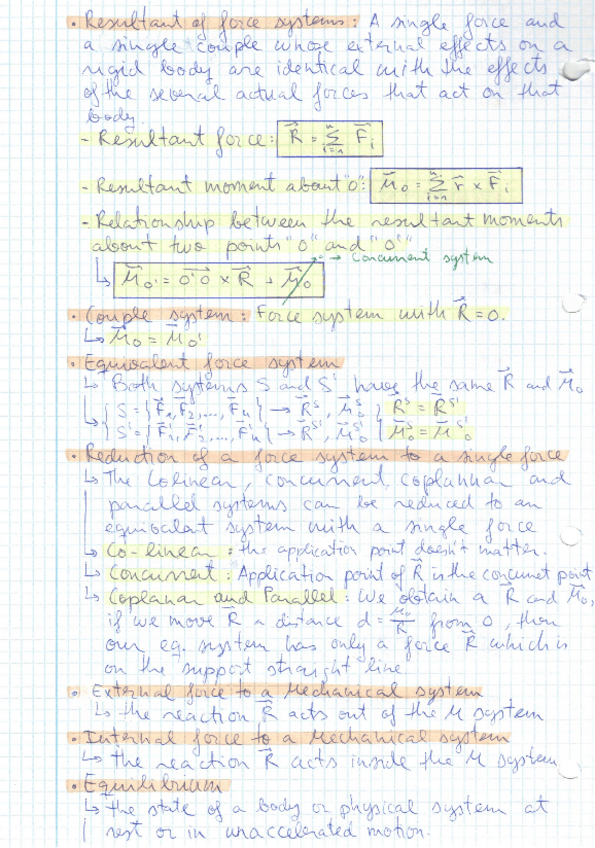 • Resultant of force systems: A single force and
a single couple whose external effects on a
rigid body are identical with the effects
of the several actual forces that act on that
body.
- Resultant force: R⃗ = Σ F⃗i
i=1 n
- Resultant moment about "O": M⃗o = Σ r⃗ × F⃗i
i=1 n
- Relationship between the resultant moments
about two points "O" and "O'"
0 → Concurrent system
↳ M⃗o' = O'O⃗ × R⃗ + M⃗o
• Couple system: Force system with R⃗ = 0.
↳ M⃗o = M⃗o'
• Equivalent force system
↳ Both systems S and S' have the same R⃗ and M⃗o
↳ { S = {F⃗1, F⃗2, ..., F⃗n} → R⃗s, M⃗oˢ } R⃗s = R⃗s'
{ S' = {F⃗'1, F⃗'2, ..., F⃗'n} → R⃗s', M⃗oˢ' } M⃗oˢ = M⃗oˢ'
• Reduction of a force system to a single force
↳ The Colinear, concurrent, coplannar and
parallel systems can be reduced to an
equivalent system with a single force
↳ Co-linear: the application point doesn't matter.
↳ Concurrent: Application point of R⃗ is the concurret point
↳ Coplanar and Parallel: We obtain a R⃗ and M⃗o,
if we move R⃗ a distance d = Mo/R from O, then
our eq. system has only a force R⃗ which is
on the support straight line.
• External force to a Mechanical system
↳ the reaction R⃗ acts out of the M system
• Internal force to a Mechanical system
↳ the reaction R⃗ acts inside the M system
• Equilibrium
↳ the state of a body or physical system at
rest or in unaccelerated motion.